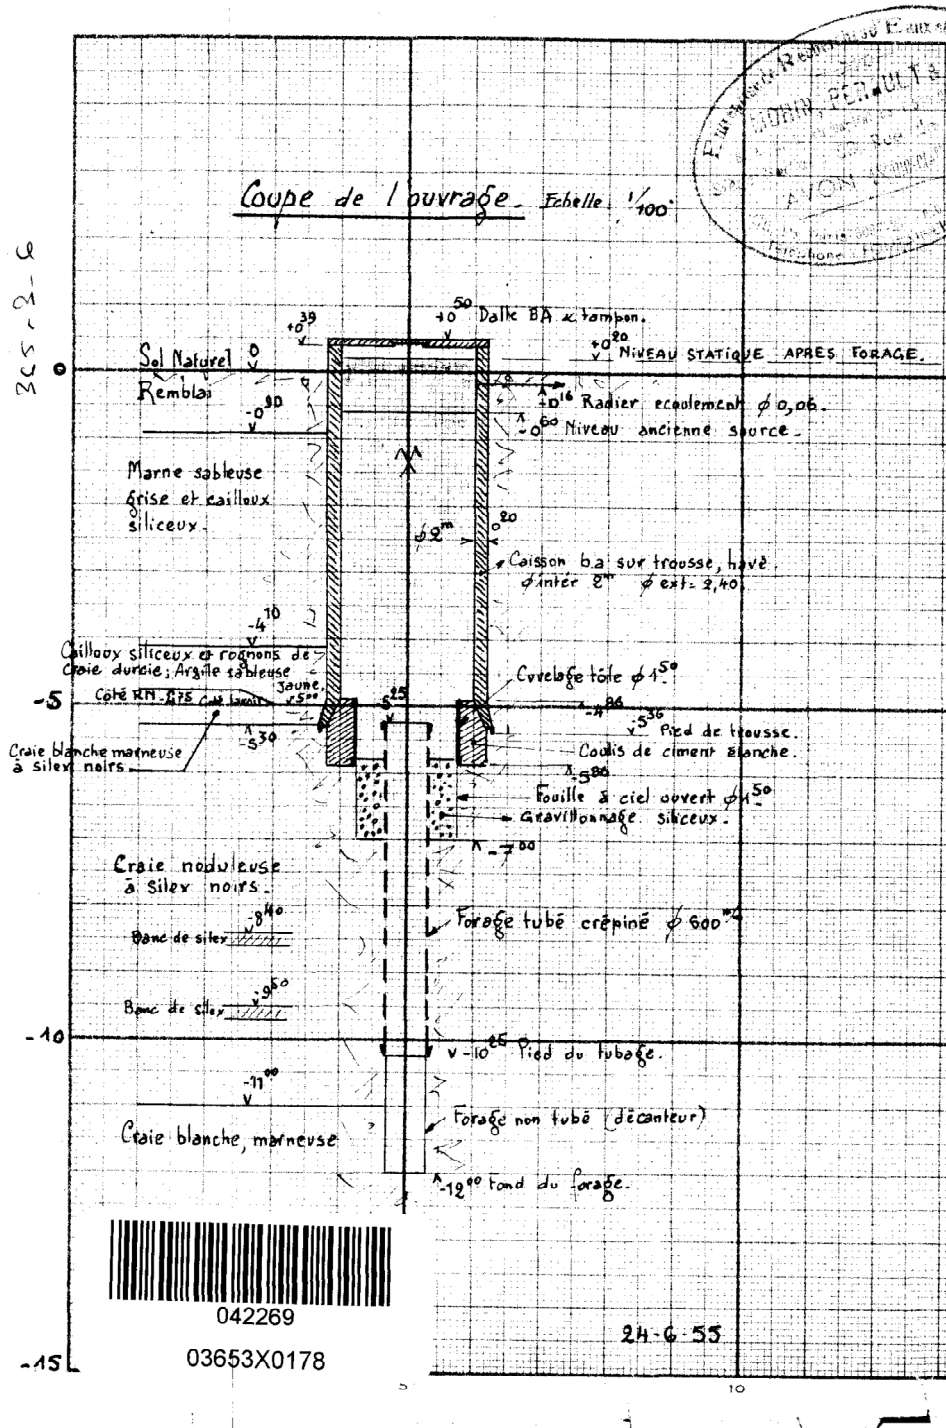 Coupe de l'ouvrage. Echelle. 1/100°
365-2-6
+0^39
+0^50 Dalle BA & tampon.
+0^20
NIVEAU STATIQUE APRES FORAGE.
Sol Naturel 0
0
Remblai
-0^90
+0^16 Radier ecoulement ϕ 0,06.
-0^60 Niveau ancienne source.
Marne sableuse
grise et cailloux
siliceux.
ϕ 2^m
0^20
Caisson b.a sur trousse, havé.
ϕ intér 2^m ϕ ext= 2,40
-4^10
Cailloux siliceux et rognons de
Craie durcie; Argile sableuse
jaune.
Cuvelage tôle ϕ 1^50
Côté RN. 5^00
-5
5^25
-4^86
-5^36 Pied de trousse.
-5^30
Craie blanche marneuse
à silex noirs.
Coulis de ciment étanche.
-5^86
Fouille à ciel ouvert ϕ 1^50
Gravillonnage siliceux.
-7^00
Craie noduleuse
à silex noirs.
-8^40
Banc de silex
Forage tubé crépiné ϕ 600 m/m
-9^50
Banc de silex
-10
-10^25 Pied du tubage.
-11^00
Forage non tubé (décanteur)
Craie blanche, marneuse
-12^00 Fond du forage.
042269
03653X0178
24-6-55
-15
5
10
MORIN, PERAULT &
AVON
Téléphone